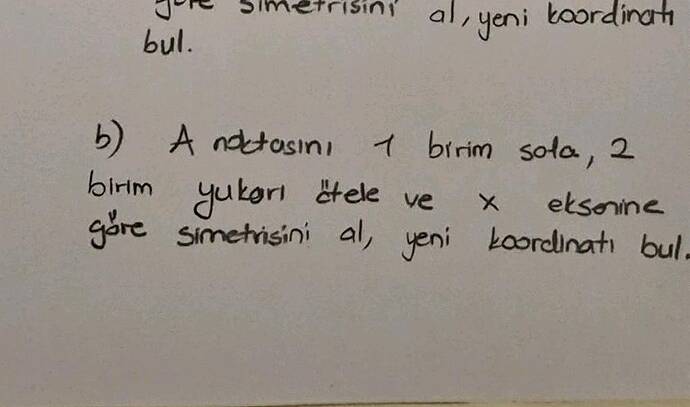 göre simetrisini al, yeni koordinatı
bul.
b) A noktasını 1 birim sola, 2
birim yukarı ötele ve x eksenine
göre simetrisini al, yeni koordinatı bul.